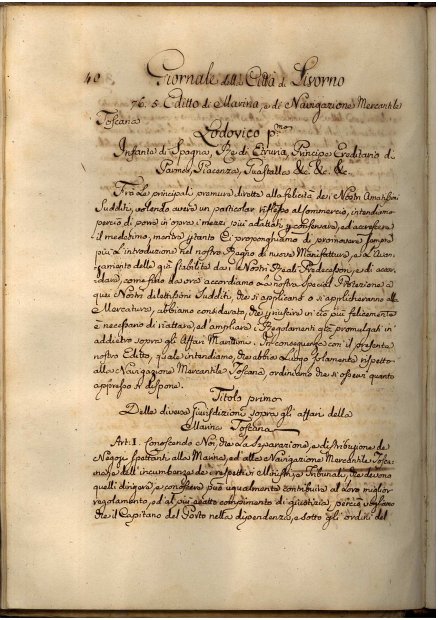 40 Giornale della Città di Livorno
76. 5. Editto di Marina, e di Navigazione Mercantile
Toscana
Lodovico pmo
Infante di Spagna, Re di Etruria, Principe Ereditario di
Parma, Piacenza, Guastalla &c. &c. &c.
Tra le principali premure dirette alla felicità dei Nostri Amatissimi
Sudditi, volendo avere un particolar riflesso al Commercio, intendiamo
perciò di porre in opra i mezzi più adattati per conservare, ed accrescere
il medesimo, mentre Ci proponghiamo di promovere sempre
più l'introduzione nel nostro Regno di nuove Manifatture, e l'avan-
zamento delle già stabilite dai Nostri Reali Predecessori, e di accor-
dare, come fin da ora accordiamo la nostra special Protezione a
quei Nostri dilettissimi Sudditi, che si applicano o si applicheranno alla
Mercatura, abbiamo considerato, che per riuscire in ciò più felicemente
è necessario di riattare, ed ampliare i Regolamenti già promulgati in
addietro sopra gli Affari Marittimi. In conseguenza con il presente
nostro Editto, quale intendiamo, che abbia luogo solamente rispetto
alla Navigazione Mercantile Toscana, ordiniamo che si osservi quanto
appresso si dispone.
Titolo primo
Delle diverse Jurisdizioni sopra gli affari della
Marina Toscana
Art. I. Conoscendo Noi, che la separazione, e distribuzione de
Negozj spettanti alla Marina, ed alla Navigazione Mercantile Tosca-
na, dell'incumbenze de' respettivi Ministri, e Tribunali, che devono
quelli dirigere, e conoscere può ugualmente contribuire al loro miglior
regolamento, ed al più esatto compimento di giustizia, perciò vogliamo
che il Capitano del Porto nella dipendenza, e sotto gli ordini del